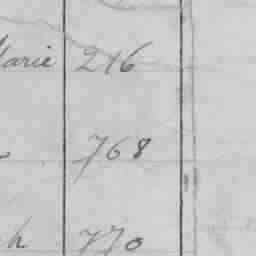 Marie 216
768
h 770